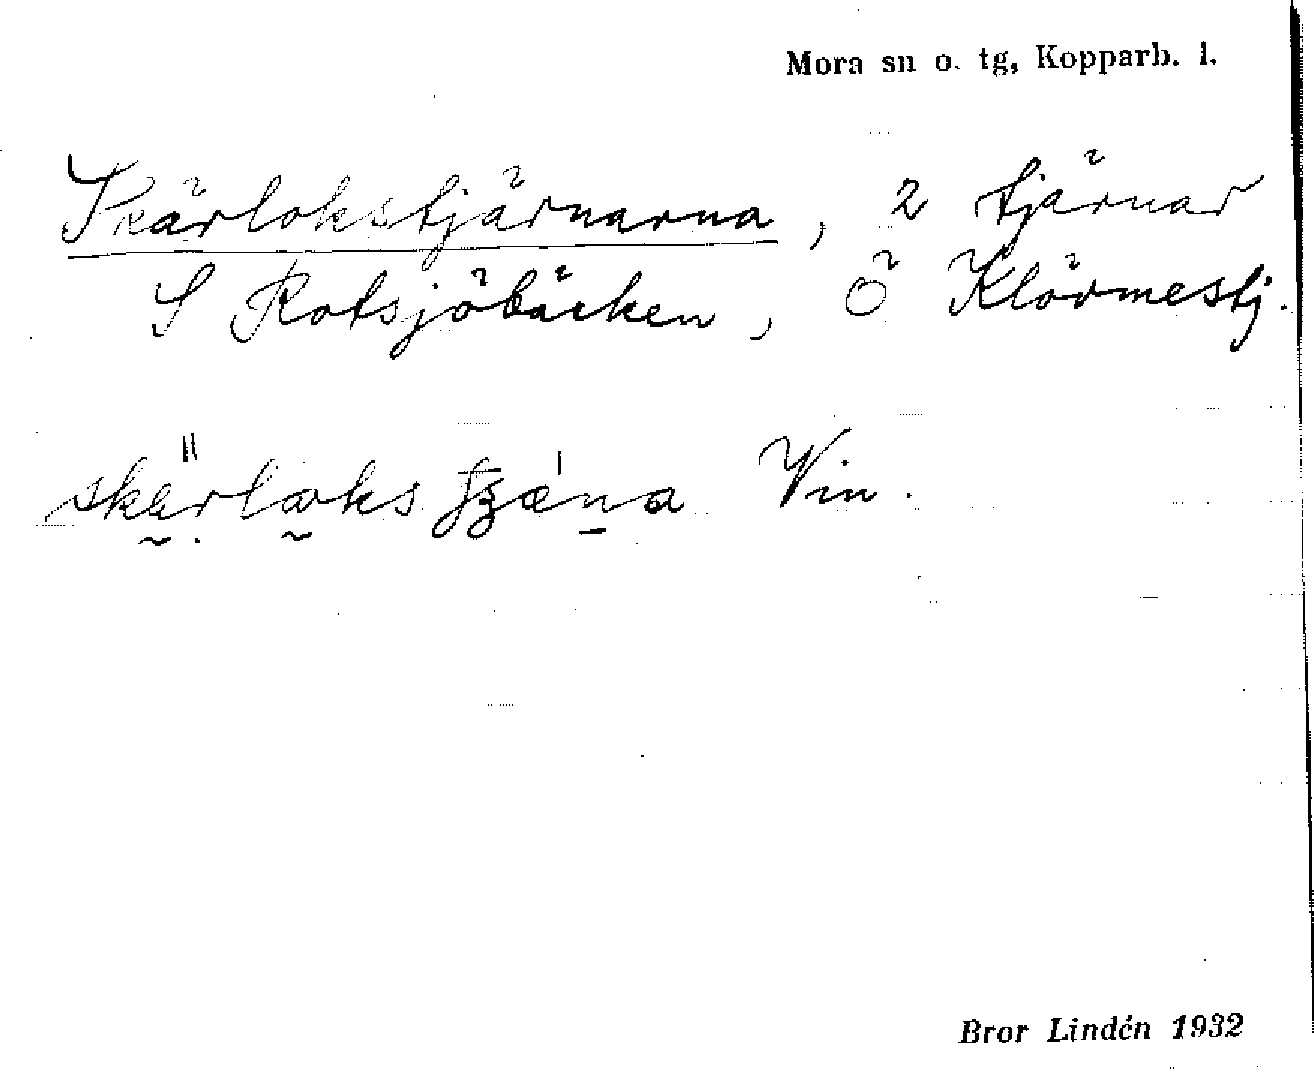 Mora sn o. tg, Kopparb. l.
Skärlokstjärnarna, 2 tjärnar
S Rotsjöbäcken, Ö Klövmestj.
Vin.
Bror Lindén 1932